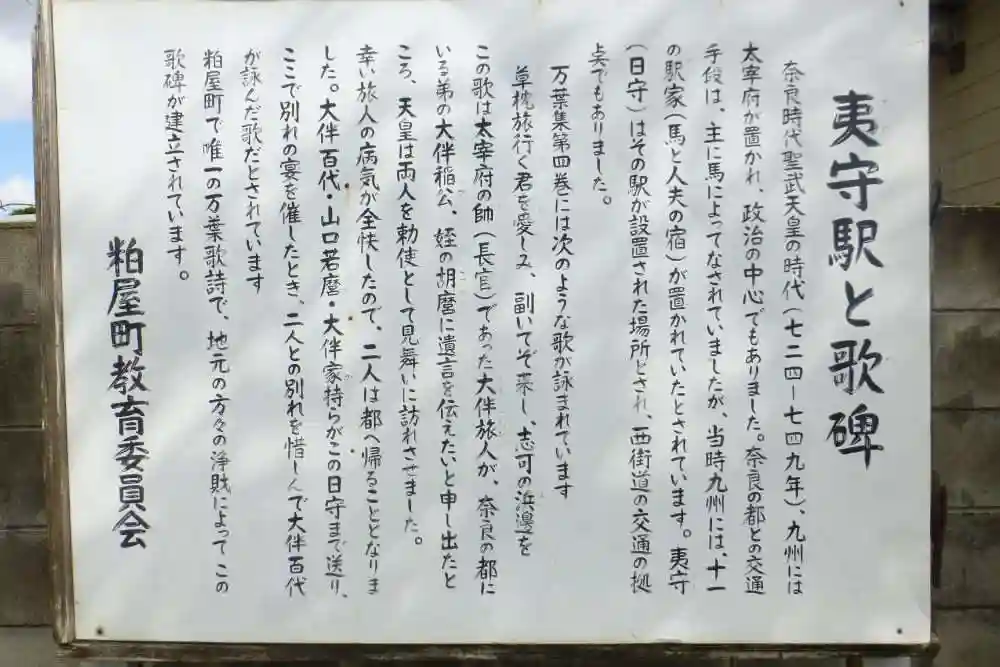 夷守駅と歌碑
奈良時代聖武天皇の時代(七二四―七四九年)、九州には
太宰府が置かれ、政治の中心でもありました。奈良の都との交通
手段は、主に馬によってなされていましたが、当時九州には、十一
の駅家(馬と人夫の宿)が置かれていたとされています。夷守
(日守)はその駅が設置された場所とされ、西街道の交通の拠
点でもありました。
万葉集第四巻には次のような歌が詠まれています
草枕旅行く君を愛しみ、副いてぞ来し、志可の浜邊を
この歌は太宰府の帥(長官)であった大伴旅人が、奈良の都に
いる弟の大伴稲公、姪の胡麿に遺言を伝えたいと申し出たと
ころ、天皇は両人を勅使として見舞いに訪れさせました。
幸い旅人の病気が全快したので、二人は都へ帰ることとなりま
した。大伴百代・山口若麿・大伴家持らがこの日守まで送り、
ここで別れの宴を催したとき、二人との別れを惜しんで大伴百代
が詠んだ歌だとされています
粕屋町で唯一の万葉歌詩で、地元の方々の浄財によってこの
歌碑が建立されています。
粕屋町教育委員会